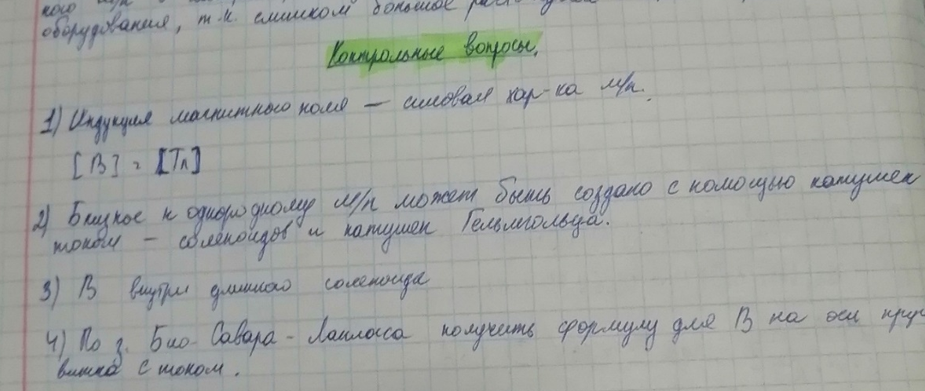 оборудования, т.к. слишком большое
Контрольные вопросы.
1) Индукция магнитного поля — силовая хар-ка м/п.
[B] = [Тл]
2) Близкое к однородному м/п может быть создано с помощью катушек
током — соленоидов и катушек Гельмгольца.
3) B внутри длинного соленоида
4) По з. Био-Савара-Лапласа получить формулу для B на оси круг
витка с током.